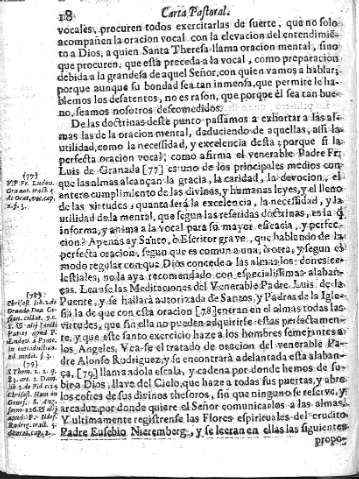 18 Carta Pastoral.
vocales, procuren todos exercitarlas de suerte, que no solo
acompañen la oracion vocal con la elevacion del entendimiẽ-
to a Dios, a quien Santa Theresa llama oracion mental, sino
que procuren, que esta preceda a la vocal, como preparacion
debida a la grandesa de aquel Señor, con quien vamos a hablar;
porque aunque su bondad sea tan inmensa, que permite le ha-
blemos los desatentos, no es rason, que porque èl sea tan bue-
no, seamos nosotros descomedidos.
De las doctrinas deste punto passàmos a exhortar a las al-
mas las de la oracion mental, daduciendo de aquellas, assi la
utilidad, como la necessidad, y excelencia desta; porque si la
perfecta oracion vocal; como afirma el venerable Padre Fr.
Luis de Granada [77] es uno de los principales medios con
que las almas alcançan la gracia, la caridad, la devocion, el
entero cumplimiento de las divinas, y humanas leyes, y el lleno
de las virtudes; quanta serà la excelencia, la necessidad, y la
utilidad de la mental, que segun las referidas doctrinas, es la q̃
informa, y anima a la vocal para su mayor eficacia, y perfec-
cion? Apenas ay Santo, ò Escritor grave, que hablando de la
perfecta oracion, segun que es comun a una, y otra, y segun el
modo regular con que Dios concede a las almas los dones ce-
lestiales, no la aya recomendado con especialissimas alaban-
ças. Leanse las Meditaciones del Venerable Padre Luis de la
Puente, y se hallarà autorizada de Santos, y Padres de la Igle-
sia la de que con esta oracion [78] entran en el alma todas las
virtudes, que sin ella no pueden adquirirse estas perfectamen-
te, y que este santo exercicio haze a los hombres semejantes a
los Angeles. Vease el tratado de oracion del venerable Pa-
dre Alonso Rodriguez, y se encontrarà adelantada esta alaban-
ça, [79] llamandola escala, y cadena por donde hemos de su-
bir a Dios; llave del Cielo, que haze a todas sus puertas, y abre
los cofres de sus divinos thesoros, sin que ninguno se reserve, y
arcaduz por donde quiere el Señor comunicarlos a las almas.
Y ultimamente registrense las Flores espirituales del erudito
Padre Eusebio Nieremberg, y se leeràn en ellas las siguientes
propo-
(77)
(78)
(79)